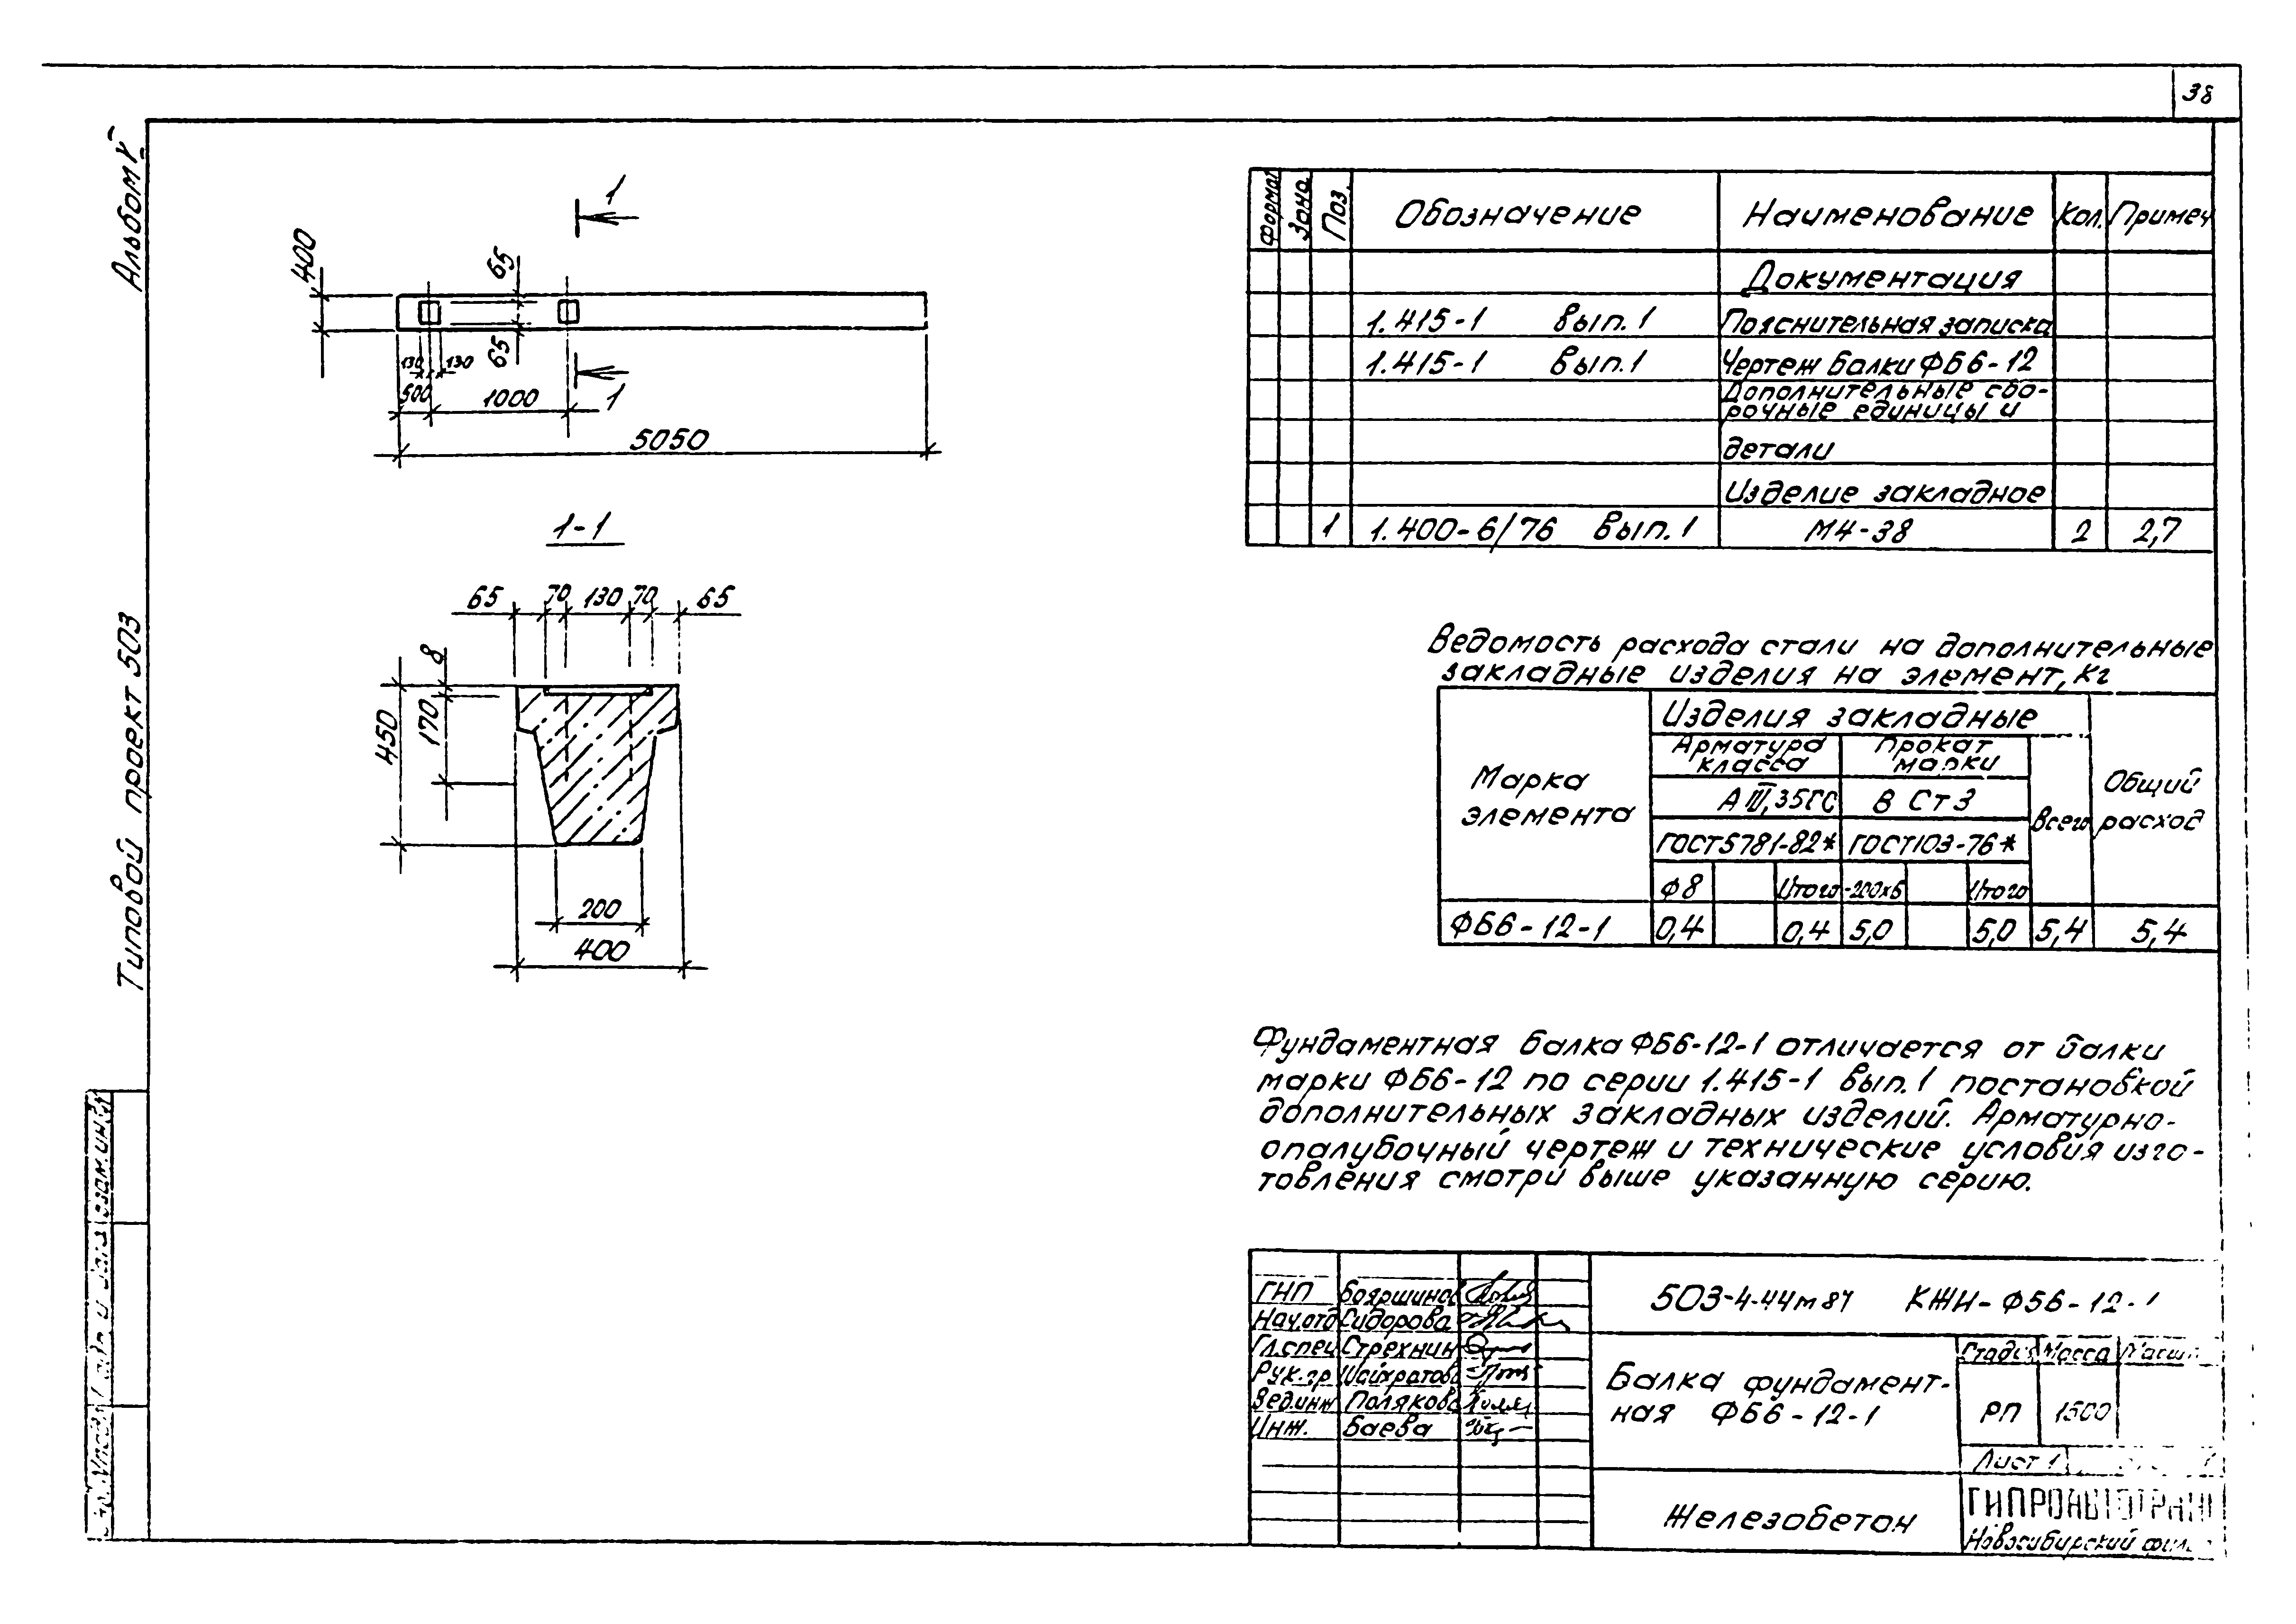 38
Альбом V
Типовой проект 503
1
400
65
65
130 130
500 1000 1
5050
1-1
65 70 130 70 65
8
170
450
200
400
Формат Зона Поз. Обозначение Наименование Кол. Примеч
Документация
1.415-1 вып.1 Пояснительная записка
1.415-1 вып.1 Чертеж балки ФБ6-12
Дополнительные сбо-
рочные единицы и
детали
Изделие закладное
1 1.400-6/76 вып.1 М4-38 2 2,7
Ведомость расхода стали на дополнительные
закладные изделия на элемент, кг
Марка элемента
Изделия закладные
Общий расход
Арматура класса
Прокат марки
Всего
А III, 35ГС В Ст 3
ГОСТ 5781-82* ГОСТ 103-76*
Ф8 Итого -200х6 Итого
ФБ6-12-1 0,4 0,4 5,0 5,0 5,4 5,4
Фундаментная балка ФБ6-12-1 отличается от балки
марки ФБ6-12 по серии 1.415-1 вып.1 постановкой
дополнительных закладных изделий. Арматурно-
опалубочный чертеж и технические условия изго-
товления смотри выше указанную серию.
ГНП Бояршинов
Нач.отд Сидорова
Гл.спец Стрехнин
Рук.гр
Вед.инж Полякова
Инж. Баева
503-4-44м87 КЖИ-ФБ6-12-1
Балка фундамент-
ная ФБ6-12-1
Стадия Масса Масш
РП 1500
Лист 1
Железобетон
ГИПРОАВТОТРАНС
Новосибирский фил
взам.инв№